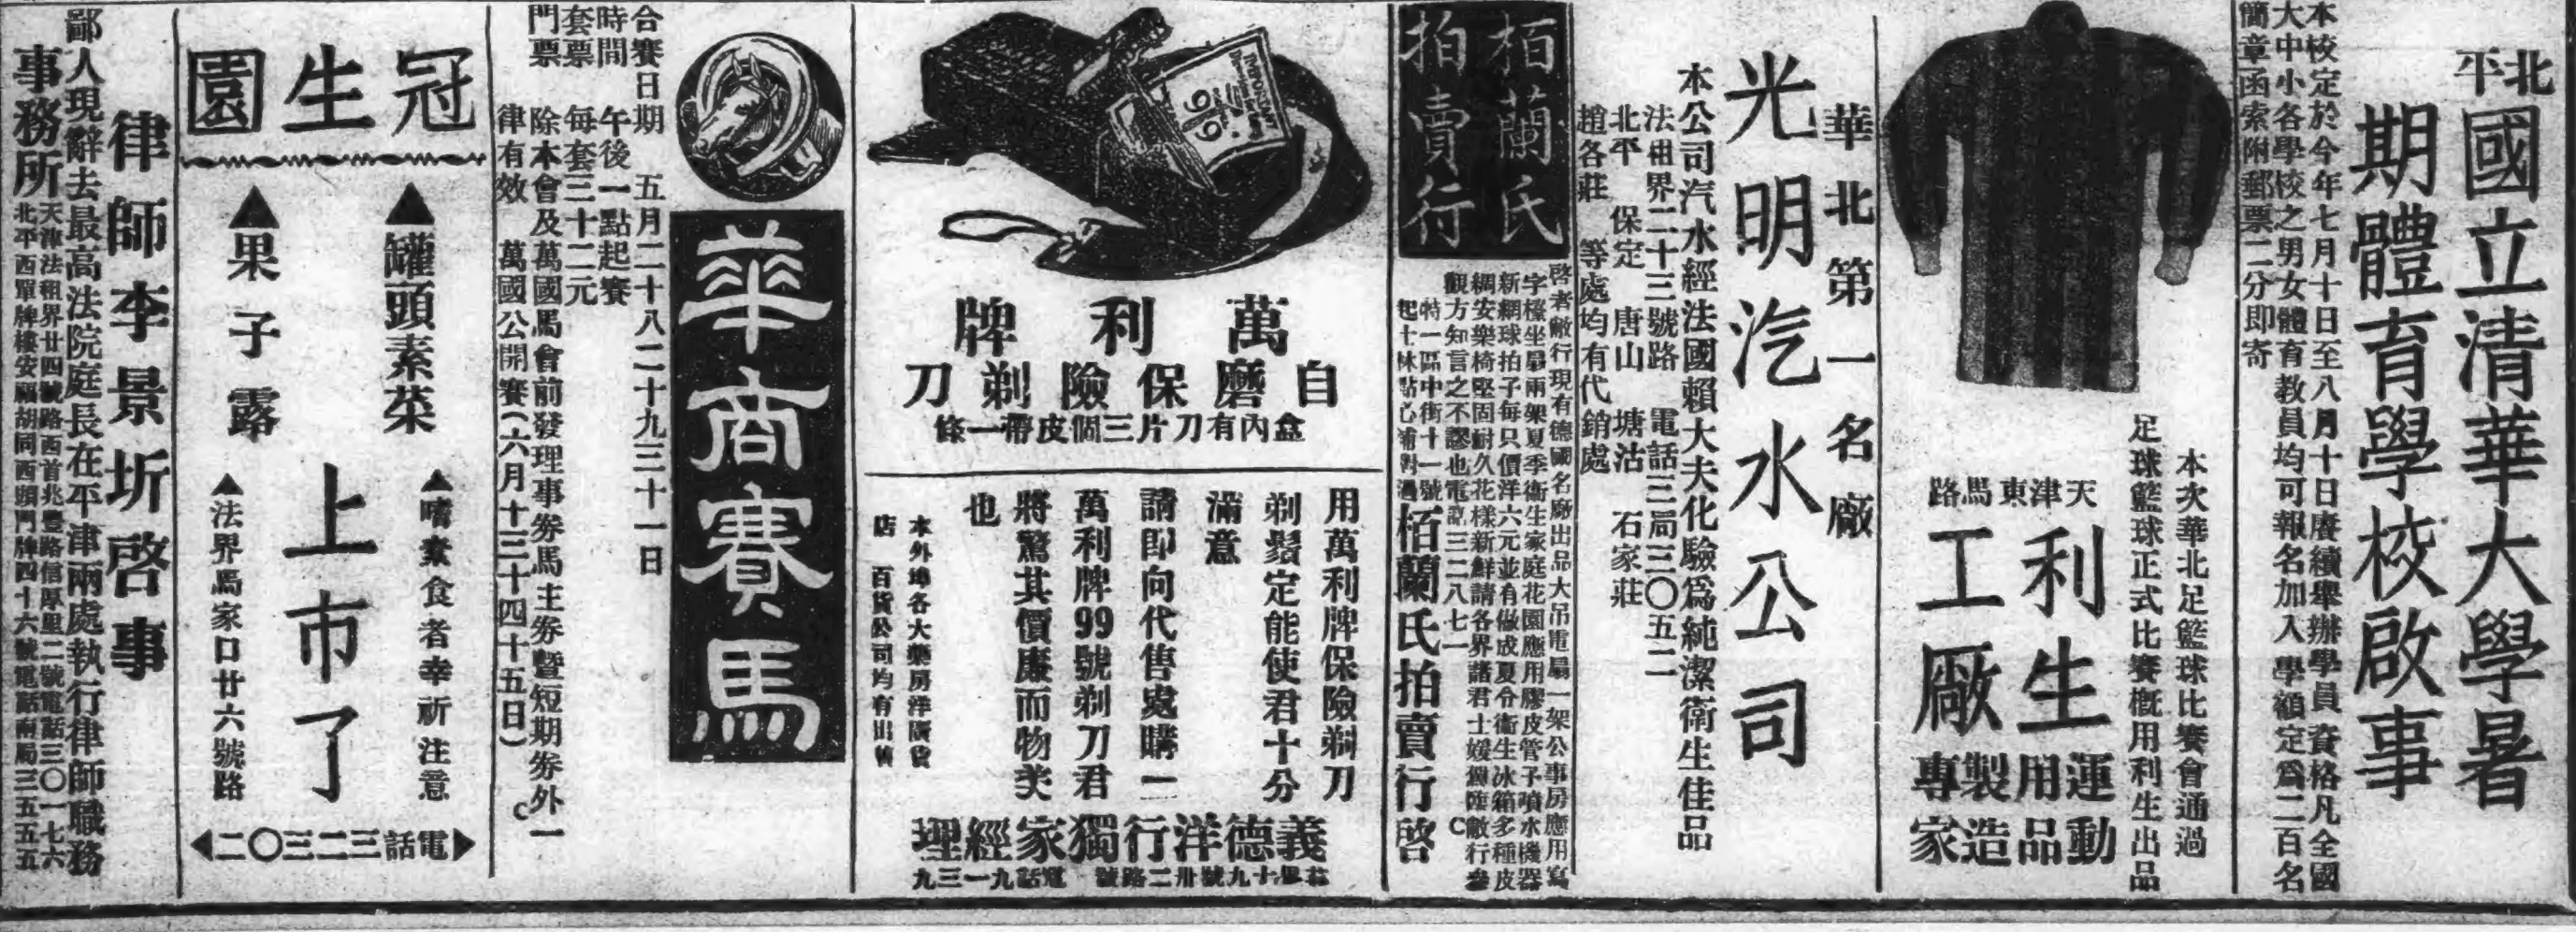 北平
國立清華大學暑
期體育學校啟事
本校定於今年七月十日至八月十日賡續舉辦學員資格凡全國
大中小各學校之男女體育教員均可報名加入學額定爲二百名
簡章函索附郵票二分即寄
本次華北足籃球比賽會通過
足球籃球正式比賽概用利生出品
天津東馬路
利生
工廠
運動
用品
製造
專家
華北第一名廠
光明汽水公司
本公司汽水經法國賴大夫化驗爲純潔衛生佳品
法租界二十三號路 電話三局三〇五二
北平 保定 唐山 塘沽 石家莊
趙各莊 等處均有代銷處
栢蘭氏
拍賣行
啓者敝行現有德國名廠出品大吊電扇一架公事房應用寫
字檯坐扇兩架夏季衛生家庭花園應用膠皮管子噴水機器
新網球拍子每只價洋六元並有做成夏令衛生冰箱多種皮
綢安樂椅堅固耐久花樣新鮮請各界諸君士媛撫臨敝行參
觀方知言之不謬也電話三二八七一 C
特一區中街十一號
起士林點心鋪對過
栢蘭氏拍賣行啓
萬利牌
自磨保險剃刀
盒內有刀片三個皮帶一條
用萬利牌保險剃刀
剃鬚定能使君十分
滿意
請即向代售處購一
萬利牌99號剃刀君
將驚其價廉而物美
也
本外埠各大藥房洋廣貨
店 百貨公司均有出售
義德洋行獨家經理
法界十九號卅二路 電話九一三九
華商賽馬
合賽日期 五月二十八二十九三十一日
時間 午後一點起賽
套票 每套三十二元
門票 除本會及萬國馬會前發理事券馬主券暨短期券外一
律有效 萬國公開賽(六月十三十四十五日) C
冠生園
▲罐頭素菜
▲果子露
上市了
▲嗜素食者幸祈注意
▲法界馬家口廿六號路
電話三二三〇二
律師李景圻啓事
鄙人現辭去最高法院庭長在平津兩處執行律師職務
事務所
天津法租界廿四號路西首兆豐路信厚里二號電話三〇一七六
北平西單牌樓安福胡同西頭門牌四十六號電話南局三五五五